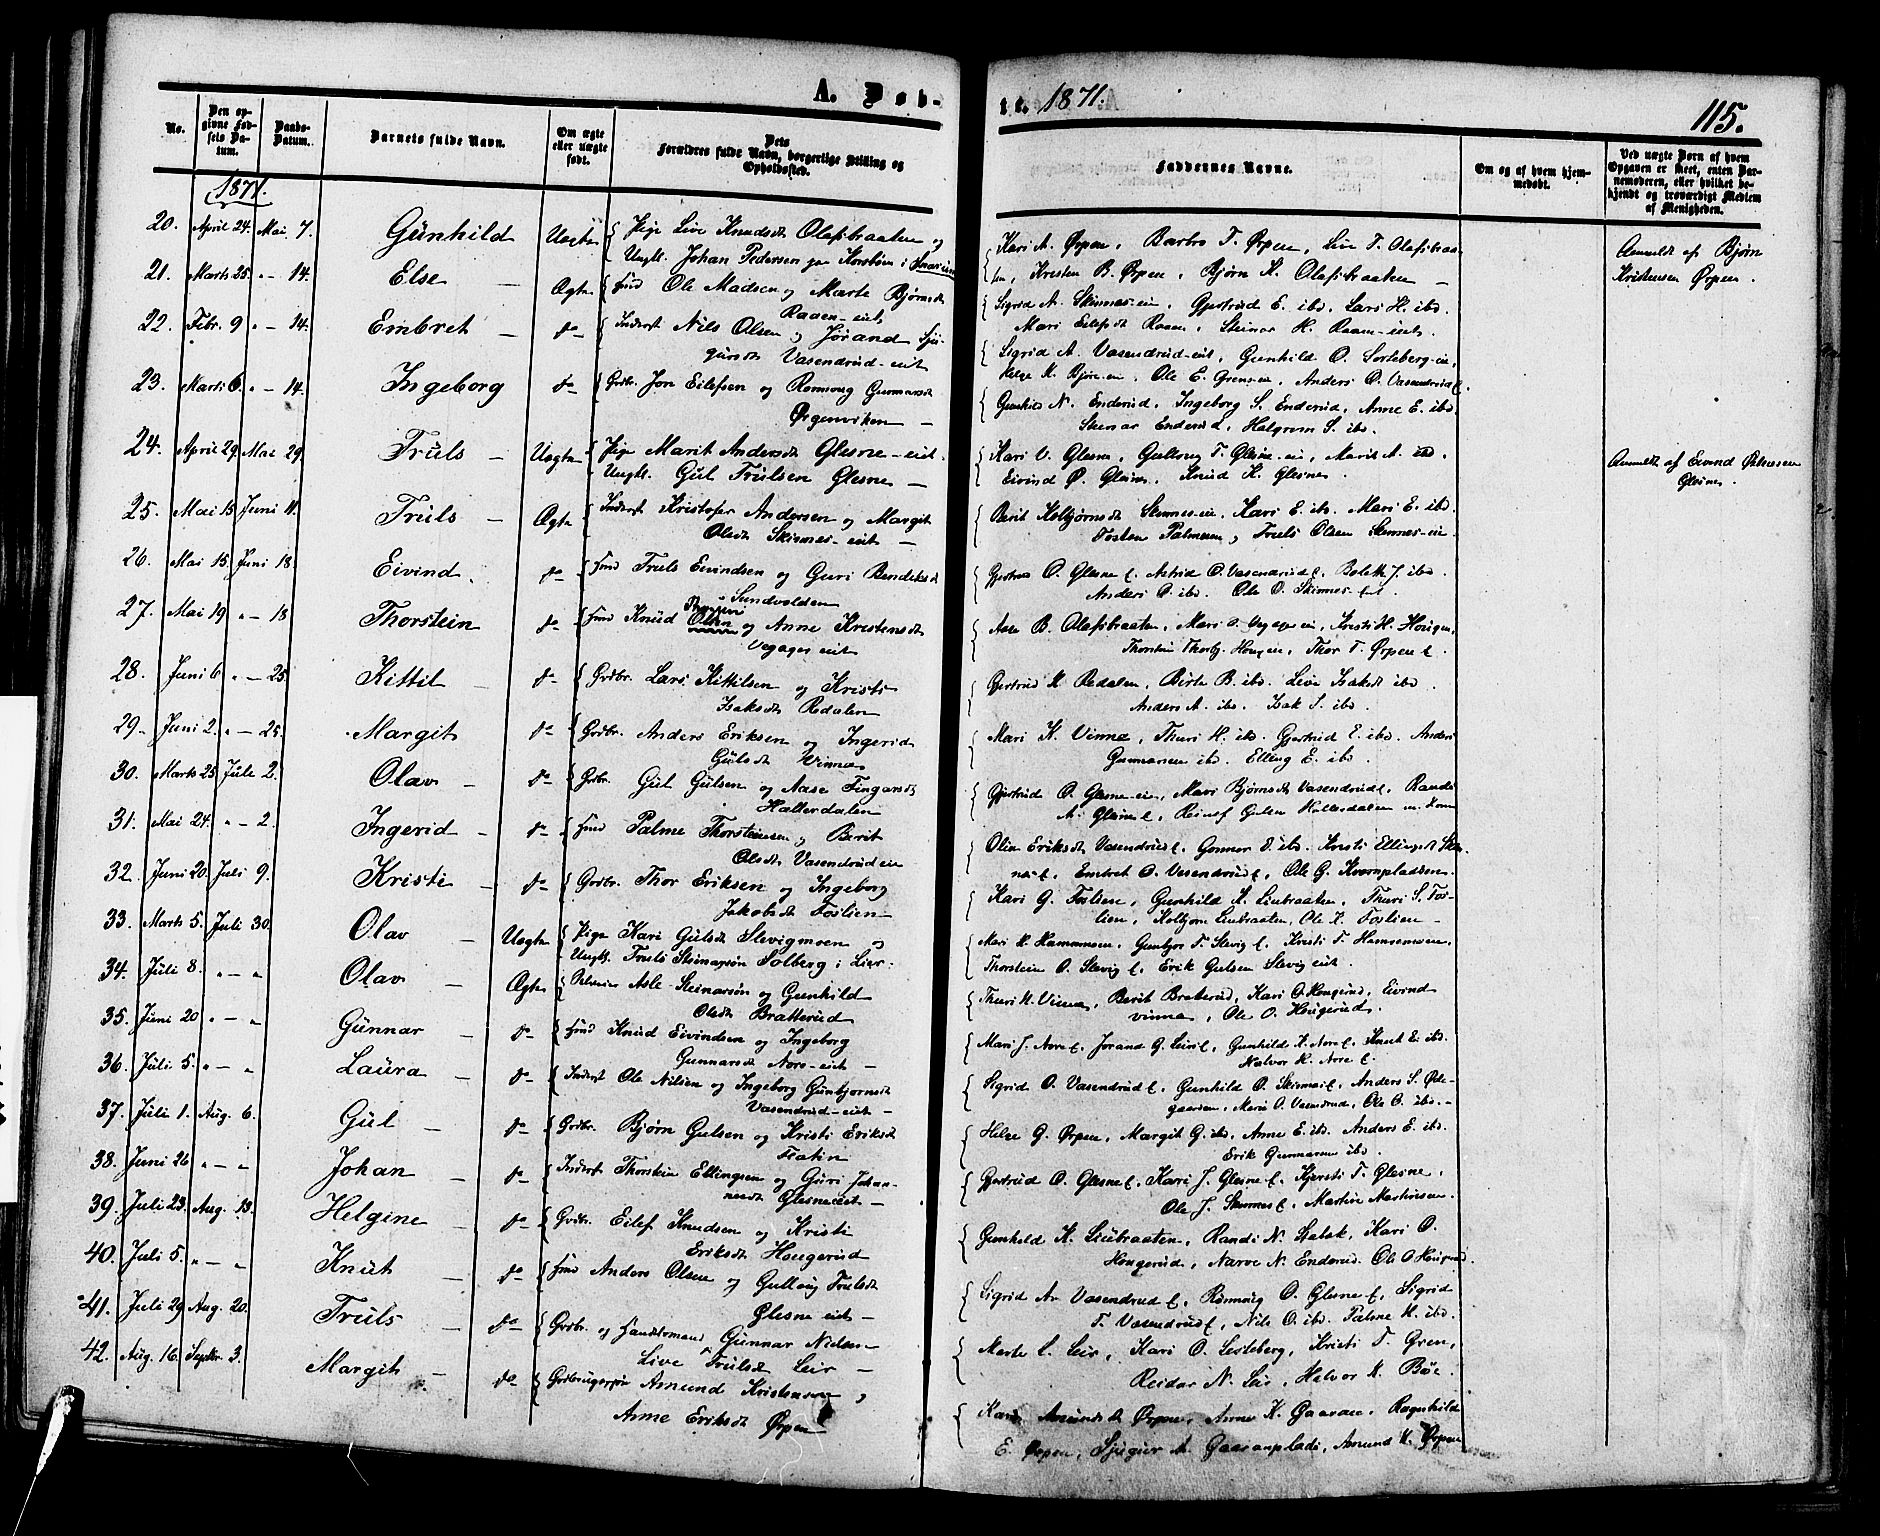 A. Døb-
te. 1871.
115.
No.
Den opgivne Fødsels Datum.
Daabs-Datum.
Barnets fulde Navn.
Om ægte eller uægte født.
Dets Forældres fulde Navn, borgerlige Stilling og Opholdssted.
Faddernes Navne.
Om og af hvem hjemmedøbt.
Ved uægte Børn af hvem Opgaven er skeet, enten Barnemoderen, eller hvilket bekjendt og troværdigt Medlem af Menigheden.
1871.
20. April 24. Mai 7. Gunhild Uægte Pige Live Knudsdt Olafsbraaten og
Ungk. Johan Pedersen paa
Kari A. Ørpen, Barbro T. Ørpen, Live T. Olafsbraa-
ten, Kristen B. Ørpen, Bjørn K. Olafsbraaten –
Anmeldt af Bjørn
Kristensen Ørpen.
21. Marts 25. " – 14. Else – Ægte Ole Madsen og Marte Bjørnsdt
Raaen-eiet
Sigrid A. Skinnes-eie, Gjertrud E. ibd. Lars H. ibd.
Mari Eilefsdt Raaen, Steinar H. Raaen-eiet.
22. Febr. 9 " – 14. Embret – do Inderst Nils Olsen og Jørand Sju-
gurdt Vasendrud-eiet
Sigrid A. Vasendrud-eiet, Gunhild O. Sorteberg-eie,
Helge K. Bjøre-eie, Ole E. Grensen, Anders O. Vasendrud
23. Marts 6. " – 14. Ingeborg do Grdbr. Jon Eilefsen og Rønnoug Gunnarsdt
Ørgenviken –
Gunhild N. Enderud, Ingeborg S. Enderud, Anne E. ibd.
Steinar Enderud, Halgrim S. ibd.
24. April 29. Mai 29. Truls – Uægte Pige Marit Andersdt Glesne-eiet.
Ungk. Gul Trulsen Glesne –
Kari O. Glesne, Gullaug T. Glesne-eie, Marit A. ibd
Eivind Ø. Glesne, Knud K. Glesne.
Anmeldt af Eivind
Glesne.
25. Mai 15. Juni 11. Truls – Ægte Inderst Kristofer Andersen og Margit
Olsdt Skinnes-eiet –
Berit Kolbjørnsdt Skinnes-eie, Kari E. ibd. Mari E. ibd.
Tosten Palmesen, Truls Olsen Skinnes-eie.
26. Mai 15. Juni 18. Eivind. do Truls Eivindsen og Guri Bendiksdt
Sundvolden
Gjertrud O. Glesne, Astrid O. Vasendrud, Boleth J. ibd.
Anders O. ibd. Ole O. Skinnes
27. Mai 19 " – 18 Thorstein do Knud Olsen og Anne Kristensdt
Vegager eiet
Aase B. Olafsbraaten, Mari O. Vegager eie, Kristi H. Hougen,
Thorstein Hougen, Thor T. Ørpen
28. Juni 6 " – 25. Kittil – do Grdbr. Lars Kittilsen og Kristi
Isaksdt Redalen
Gjertrud K. Redalen, Birte B. ibd. Live Isaksdt ibd.
Anders A. ibd. Isak S. ibd.
29. Juni 2. " – 25. Margit do Grdbr. Anders Eriksen og Ingerid
Gulsdt Vinnes
Mari K. Vinne, Thuri H. ibd. Gjertrud E. ibd. Anders
Gunnarsen ibd. Elling E. ibd.
30. Marts 25 Juli 2. Olav do Grdbr. Gul Gulsen og Aase Fingarsdt
Hallerdalen
Gjertrud O. Glesne-eie, Mari Bjørnsdt Vasendrud, Randi
A. Glesne, Reinef Gulsen Hallerdalen
31. Mai 24. " – 2. Ingerid – do Palme Thorsteinsen og Berit
Olsdt Vasendrud eie
Olia Eriksdt Vasendrud, Gunnor O. ibd. Kristi Ellingsdt
Embret O. Vasendrud, Ole G. Kvernpladsen.
32. Juni 20. Juli 9. Kristi – do Grdbr. Thor Eriksen og Ingeborg
Jakobsdt Foslien –
Kari G. Foslien, Gunhild K. Liubraaten, Thuri S. Fos-
lien, Kolbjørn Liubraaten, Ole K. Foslien –
33. Marts 5. Juli 30. Olav – Uægte Pige Kari Gulsdt Slevigmoen og
Ungk. Truls Steinarsøn Solberg i Lier.
Mari K. Hamremoen, Gunbjør T. Slevig, Kristi T. Hamremoen,
Thorstein O. Slevig, Erik Gulsen Slevig eiet.
34. Juli 8. " – " Olav – Ægte Asle Steinarsøn og Gunhild
Olsdt Bratterud
Thuri K. Vinnes, Berit Braterud, Kari O. Hougerud, Eivind
Vinnes, Ole O. Hougerud.
35. Juni 20 " – " Gunnar – do Knud Eivindsen og Ingeborg
Gunnarsdt Nore-eiet –
Mari J. Nore, Jørand G. Leir, Gunhild K. Nore, Knut E. ibd.
Halvor K. Nore.
36. Juli 5. " – " Laura – do Inderst Ole Nilsen og Ingeborg Gunbjørnsdt
Vasendrud-eiet –
Sigrid O. Vasendrud, Gunhild O. Skinnes, Anders S. Øde-
gaarden, Mari O. Vasendrud, Ole O. ibd. –
37. Juli 1. Aug. 6. Gul – do Grdbr. Bjørn Gulsen og Kristi Eriksdt
Helge G. Ørpen, Margit G. ibd, Anne E. ibd. Anders E. ibd.
Erik Gunnarsen ibd.
38. Juni 26 " – " Johan – do Inderst Thorstein Ellingsen og Guri Johan-
nesdt Glesne eiet –
Gjertrud O. Glesne, Kari J. Glesne, Kjersti T. Glesne,
Ole J. Skinnes, Martin Martinsen.
39. Juli 23. Aug. 13. Helgine – do Grdbr. Eilef Knudsen og Kristi
Eriksdt Hougerud
Gunhild K. Liubraaten, Randi N. , Kari O.
Hougerud, Narve N. Enderud, Ole O Hougerud
40. Juli 5. " – " Knut – do Anders Olsen og Gulloug Trulsdt
Glesne eiet –
Sigrid A. Vasendrud, Rønnoug O. Glesne, Sigrid
T. Vasendrud, Nils O. ibd. Palme H. ibd.
41. Juli 29 Aug. 20. Truls – do Grdbr. og Handelsmand Gunnar Nielsen
Live Trulsdt Leir –
Marte L. Leir, Kari O. Sorteberg, Kristi T. Gren,
Reidar N. Leir, Halvor K. Bøe.
42. Aug. 16. Septbr. 3. Margit – do Amund Kristensen og
Anne Eriksdt Ørpen
Kari Amundsdt Ørpen, Anne K. Gaaren, Ragnhild
E. Ørpen, Sjugur A. Gaaranplads, Amund K. Ørpen